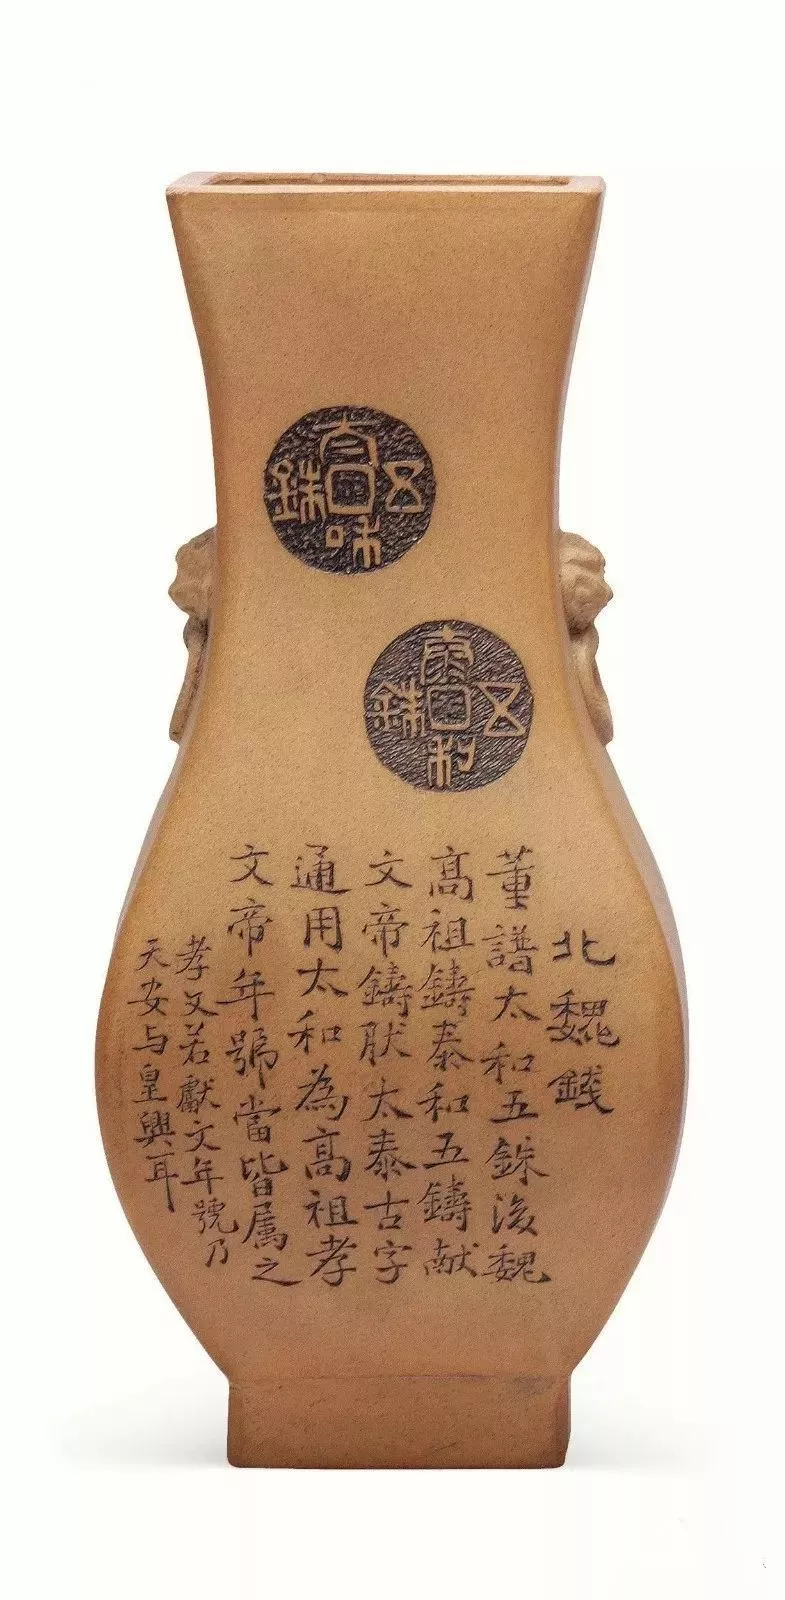 太咊五銖
泰和五銖
北魏錢
董譜太和五銖後魏
高祖鑄泰和五鑄献
文帝鑄肰太泰古字
通用太和為高祖孝
文帝年號當皆属之
孝文若獻文年號乃
天安与皇興耳